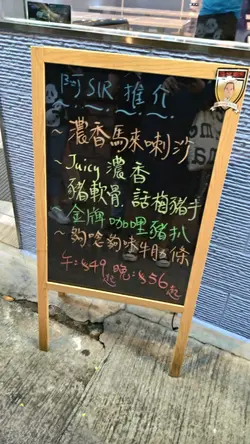 阿SIR 推介
~濃香馬來喇沙
~Juicy 濃香
豬軟骨.話梅豬手
金牌咖哩豬扒
~夠唸夠味牛肋條
午:$49起 晚:$56起